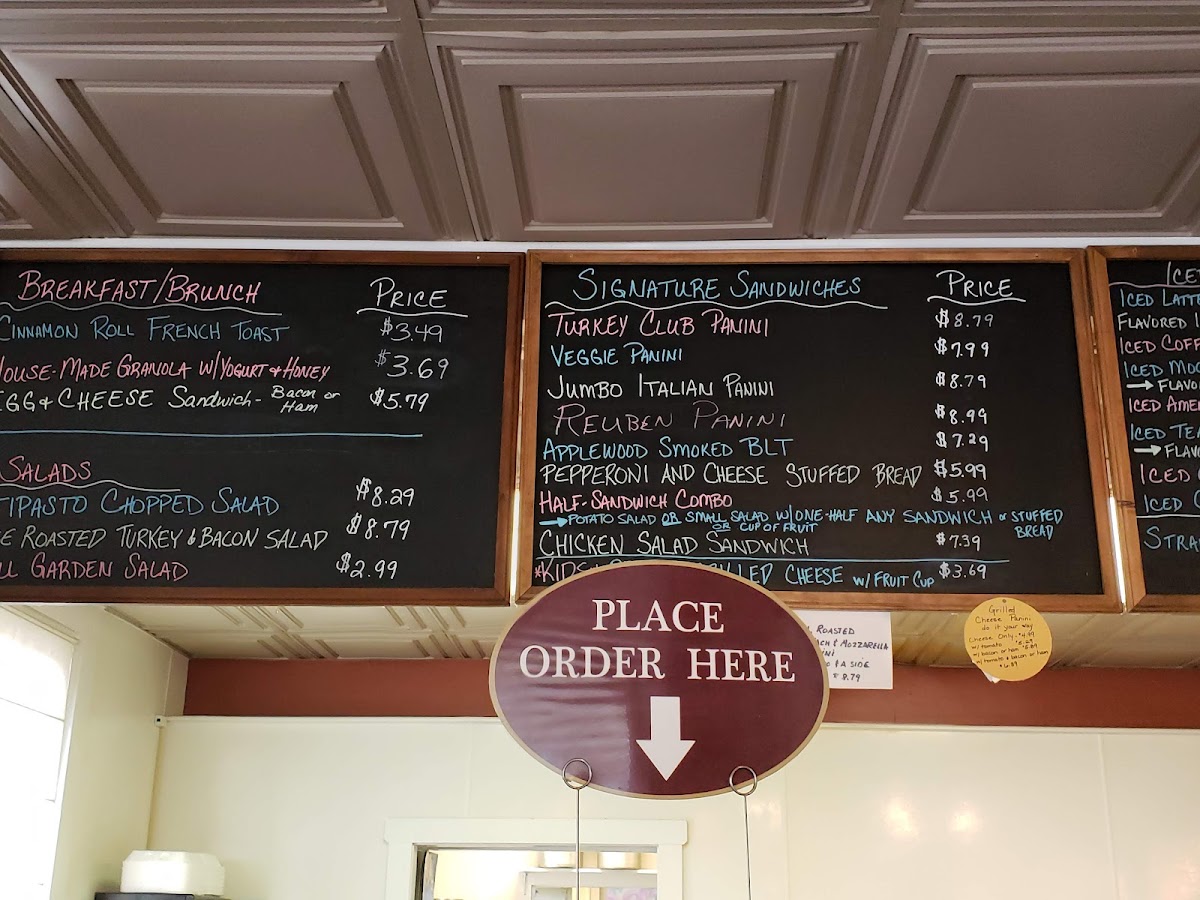 BREAKFAST/BRUNCH PRICE
CINNAMON ROLL FRENCH TOAST $3.49
HOUSE-MADE GRANOLA W/YOGURT & HONEY $3.69
EGG & CHEESE Sandwich - Bacon or Ham $5.79
SALADS
CHOPPED SALAD $8.29
ROASTED TURKEY & BACON SALAD $8.79
GARDEN SALAD $2.99
SIGNATURE SANDWICHES PRICE
TURKEY CLUB PANINI $8.79
VEGGIE PANINI $7.99
JUMBO ITALIAN PANINI $8.79
REUBEN PANINI $8.99
APPLEWOOD SMOKED BLT $7.29
PEPPERONI AND CHEESE STUFFED BREAD $5.99
HALF-SANDWICH COMBO $5.99
→ POTATO SALAD OR SMALL SALAD W/ONE-HALF ANY SANDWICH or STUFFED BREAD
OR CUP OF FRUIT
CHICKEN SALAD SANDWICH $7.39
*KIDS CHEESE W/ FRUIT CUP $3.69
ICED
ICED LATTE
FLAVORED
ICED
ICED
→ FLAVO
ICED
ICED TEA
→ FLAVO
ICED
ICED
PLACE
ORDER HERE
ROASTED
& MOZZARELLA
& A SIDE
$8.79
Grilled
Cheese Panini
do it your way
Cheese Only
w/tomato
w/bacon or ham
w/tomato & bacon or ham